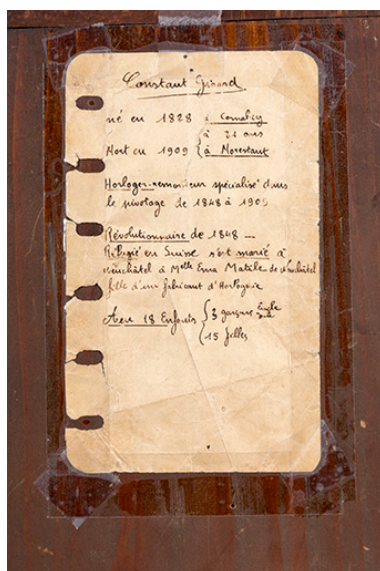 Constant Girard
né en 1828 à
à 21 ans
Mort en 1909 à Morestant
Horloger-remonteur spécialisé dans
le pivotage de 1848 à 1909
Révolutionnaire de 1848 —
Réfugié en Suisse s'est marié à
Neuchâtel à Melle Emma Matile de Neuchâtel
fille d'un fabricant d'Horlogerie
A eu 18 Enfants
3 garçons
15 filles